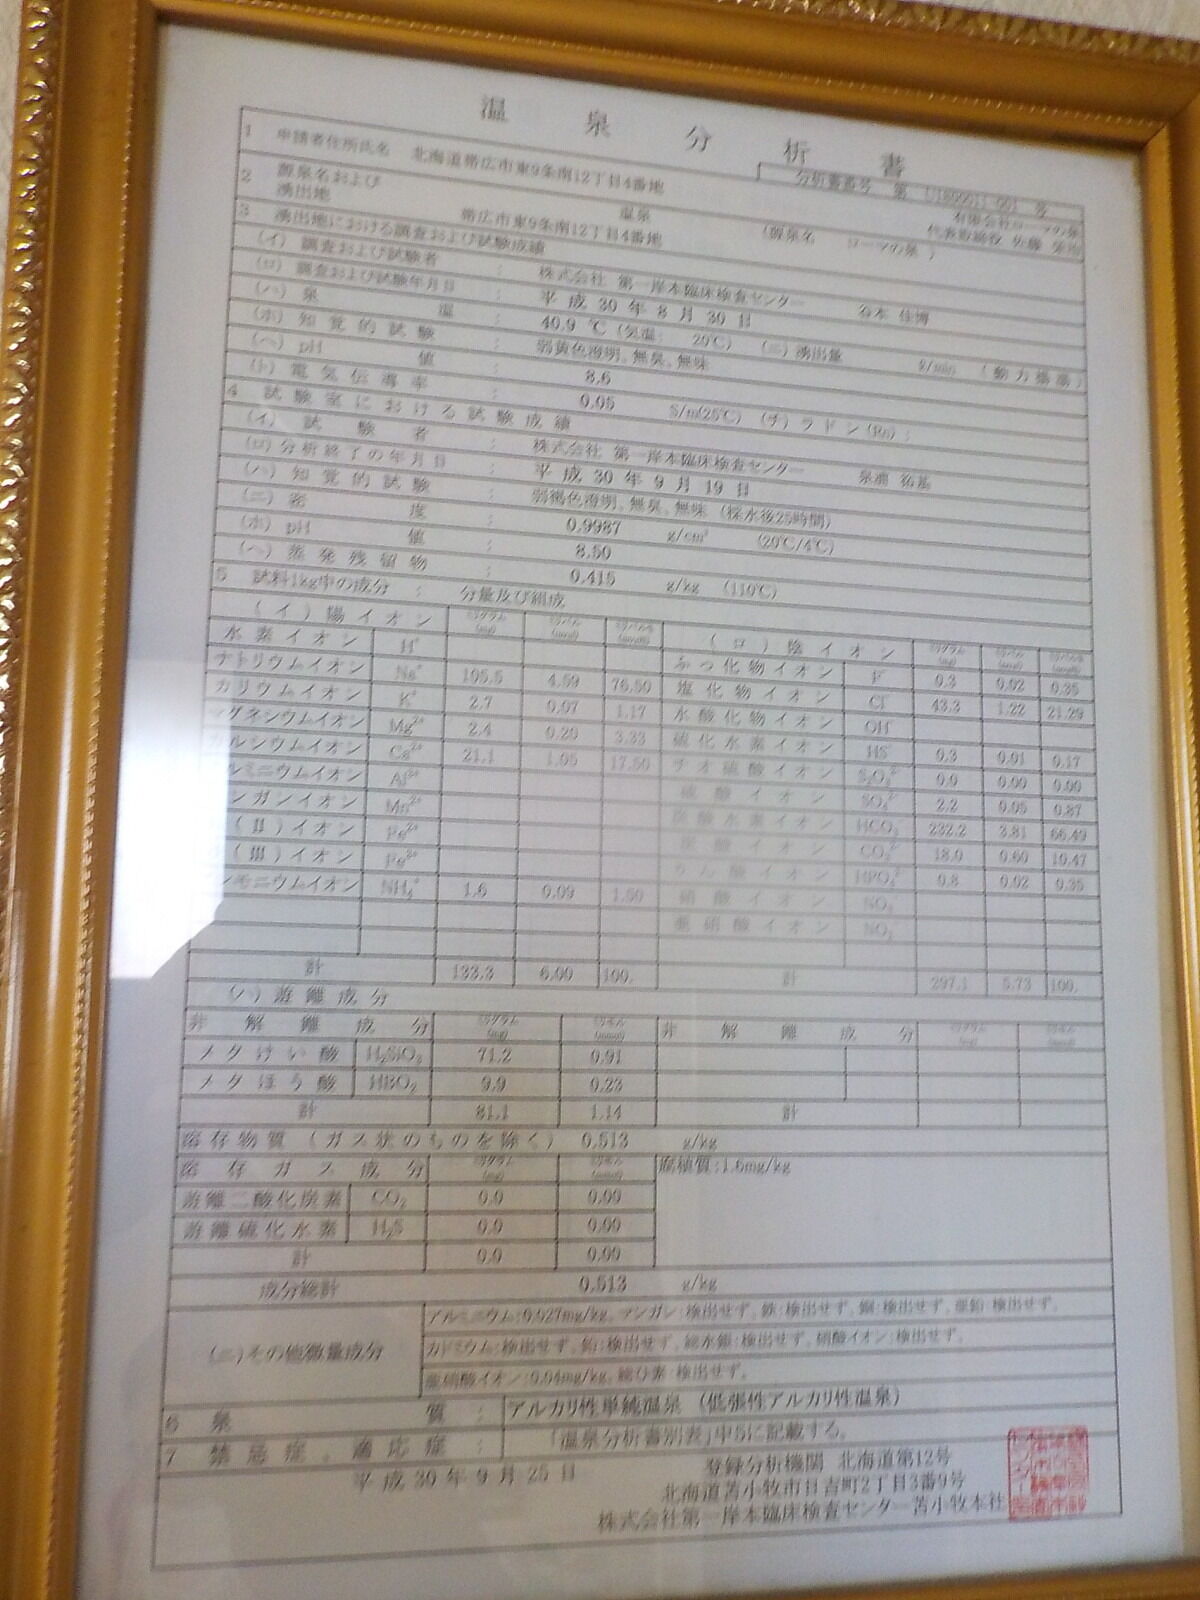 温泉分析書
分析書番号 第 号
1 申請者住所氏名 北海道帯広市東9条南12丁目4番地
有限会社ローマの泉
代表取締役 佐藤
2 源泉名および 温泉 (源泉名 ローマの泉 )
湧出地 帯広市東9条南12丁目4番地
3 湧出地における調査および試験成績
(イ) 調査および試験者 : 株式会社 第一岸本臨床検査センター 谷本 佳博
(ロ) 調査および試験年月日 : 平成30年8月30日
(ハ) 泉温 : 40.9 ℃ (気温: 20℃) (ニ) 湧出量 ℓ/min (動力揚湯)
(ホ) 知覚的試験 : 弱黄色澄明、無臭、無味
(ヘ) pH値 : 8.6
(ト) 電気伝導率 : 0.05 S/m(25℃) (チ) ラドン(Rn) :
4 試験室における試験成績
(イ) 試験者 : 株式会社 第一岸本臨床検査センター
(ロ) 分析終了の年月日 : 平成30年9月19日
(ハ) 知覚的試験 : 弱褐色澄明、無臭、無味 (採水後25時間)
(ニ) 密度 : 0.9987 g/cm³ (20℃/4℃)
(ホ) pH値 : 8.50
(ヘ) 蒸発残留物 : 0.415 g/kg (110℃)
5 試料1kg中の成分 : 分量及び組成
(イ) 陽イオン ミリグラム(mg) ミリバル(mval) ミリバル%(mval%) (ロ) 陰イオン ミリグラム(mg) ミリバル(mval) ミリバル%(mval%)
水素イオン H⁺ ふっ化物イオン F⁻ 0.3 0.02 0.35
ナトリウムイオン Na⁺ 105.5 4.59 76.50 塩化物イオン Cl⁻ 43.3 1.22 21.29
カリウムイオン K⁺ 2.7 0.07 1.17 水酸化物イオン OH⁻
マグネシウムイオン Mg²⁺ 2.4 0.20 3.33 硫化水素イオン HS⁻ 0.3 0.01 0.17
カルシウムイオン Ca²⁺ 21.1 1.05 17.50 チオ硫酸イオン S₂O₃²⁻ 0.0 0.00 0.00
ルミニウムイオン Al³⁺ 硫酸イオン SO₄²⁻ 2.2 0.05 0.87
ンガンイオン Mn²⁺ 炭酸水素イオン HCO₃⁻ 232.2 3.81 66.49
(II)イオン Fe²⁺ 炭酸イオン CO₃²⁻ 18.0 0.60 10.47
(III)イオン Fe³⁺ りん酸イオン HPO₄²⁻ 0.8 0.02 0.35
ンモニウムイオン NH₄⁺ 1.6 0.09 1.50 硝酸イオン NO₃⁻
亜硝酸イオン NO₂⁻
計 133.3 6.00 100. 計 297.1 5.73 100.
(ハ) 遊離成分
非解離成分 ミリグラム(mg) ミリモル(mmol) 非解離成分 ミリグラム(mg) ミリモル(mmol)
メタけい酸 H₂SiO₃ 71.2 0.91
メタほう酸 HBO₂ 9.9 0.23
計 81.1 1.14 計
溶存物質(ガス状のものを除く) 0.513 g/kg
溶存ガス成分 ミリグラム(mg) ミリモル(mmol) 腐植質:1.6mg/kg
遊離二酸化炭素 CO₂ 0.0 0.00
遊離硫化水素 H₂S 0.0 0.00
計 0.0 0.00
成分総計 0.513 g/kg
(ニ)その他微量成分 アルミニウム:0.027mg/kg、マンガン:検出せず、鉄:検出せず、銅:検出せず、亜鉛:検出せず、
カドミウム:検出せず、鉛:検出せず、総水銀:検出せず、硝酸イオン:検出せず、
亜硝酸イオン:0.04mg/kg、総ひ素:検出せず。
6 泉質 : アルカリ性単純温泉 (低張性アルカリ性温泉)
7 禁忌症、適応症 : 「温泉分析書別表」中5に記載する。
平成30年9月25日 登録分析機関 北海道第12号
北海道苫小牧市日吉町2丁目3番9号
株式会社第一岸本臨床検査センター苫小牧本社